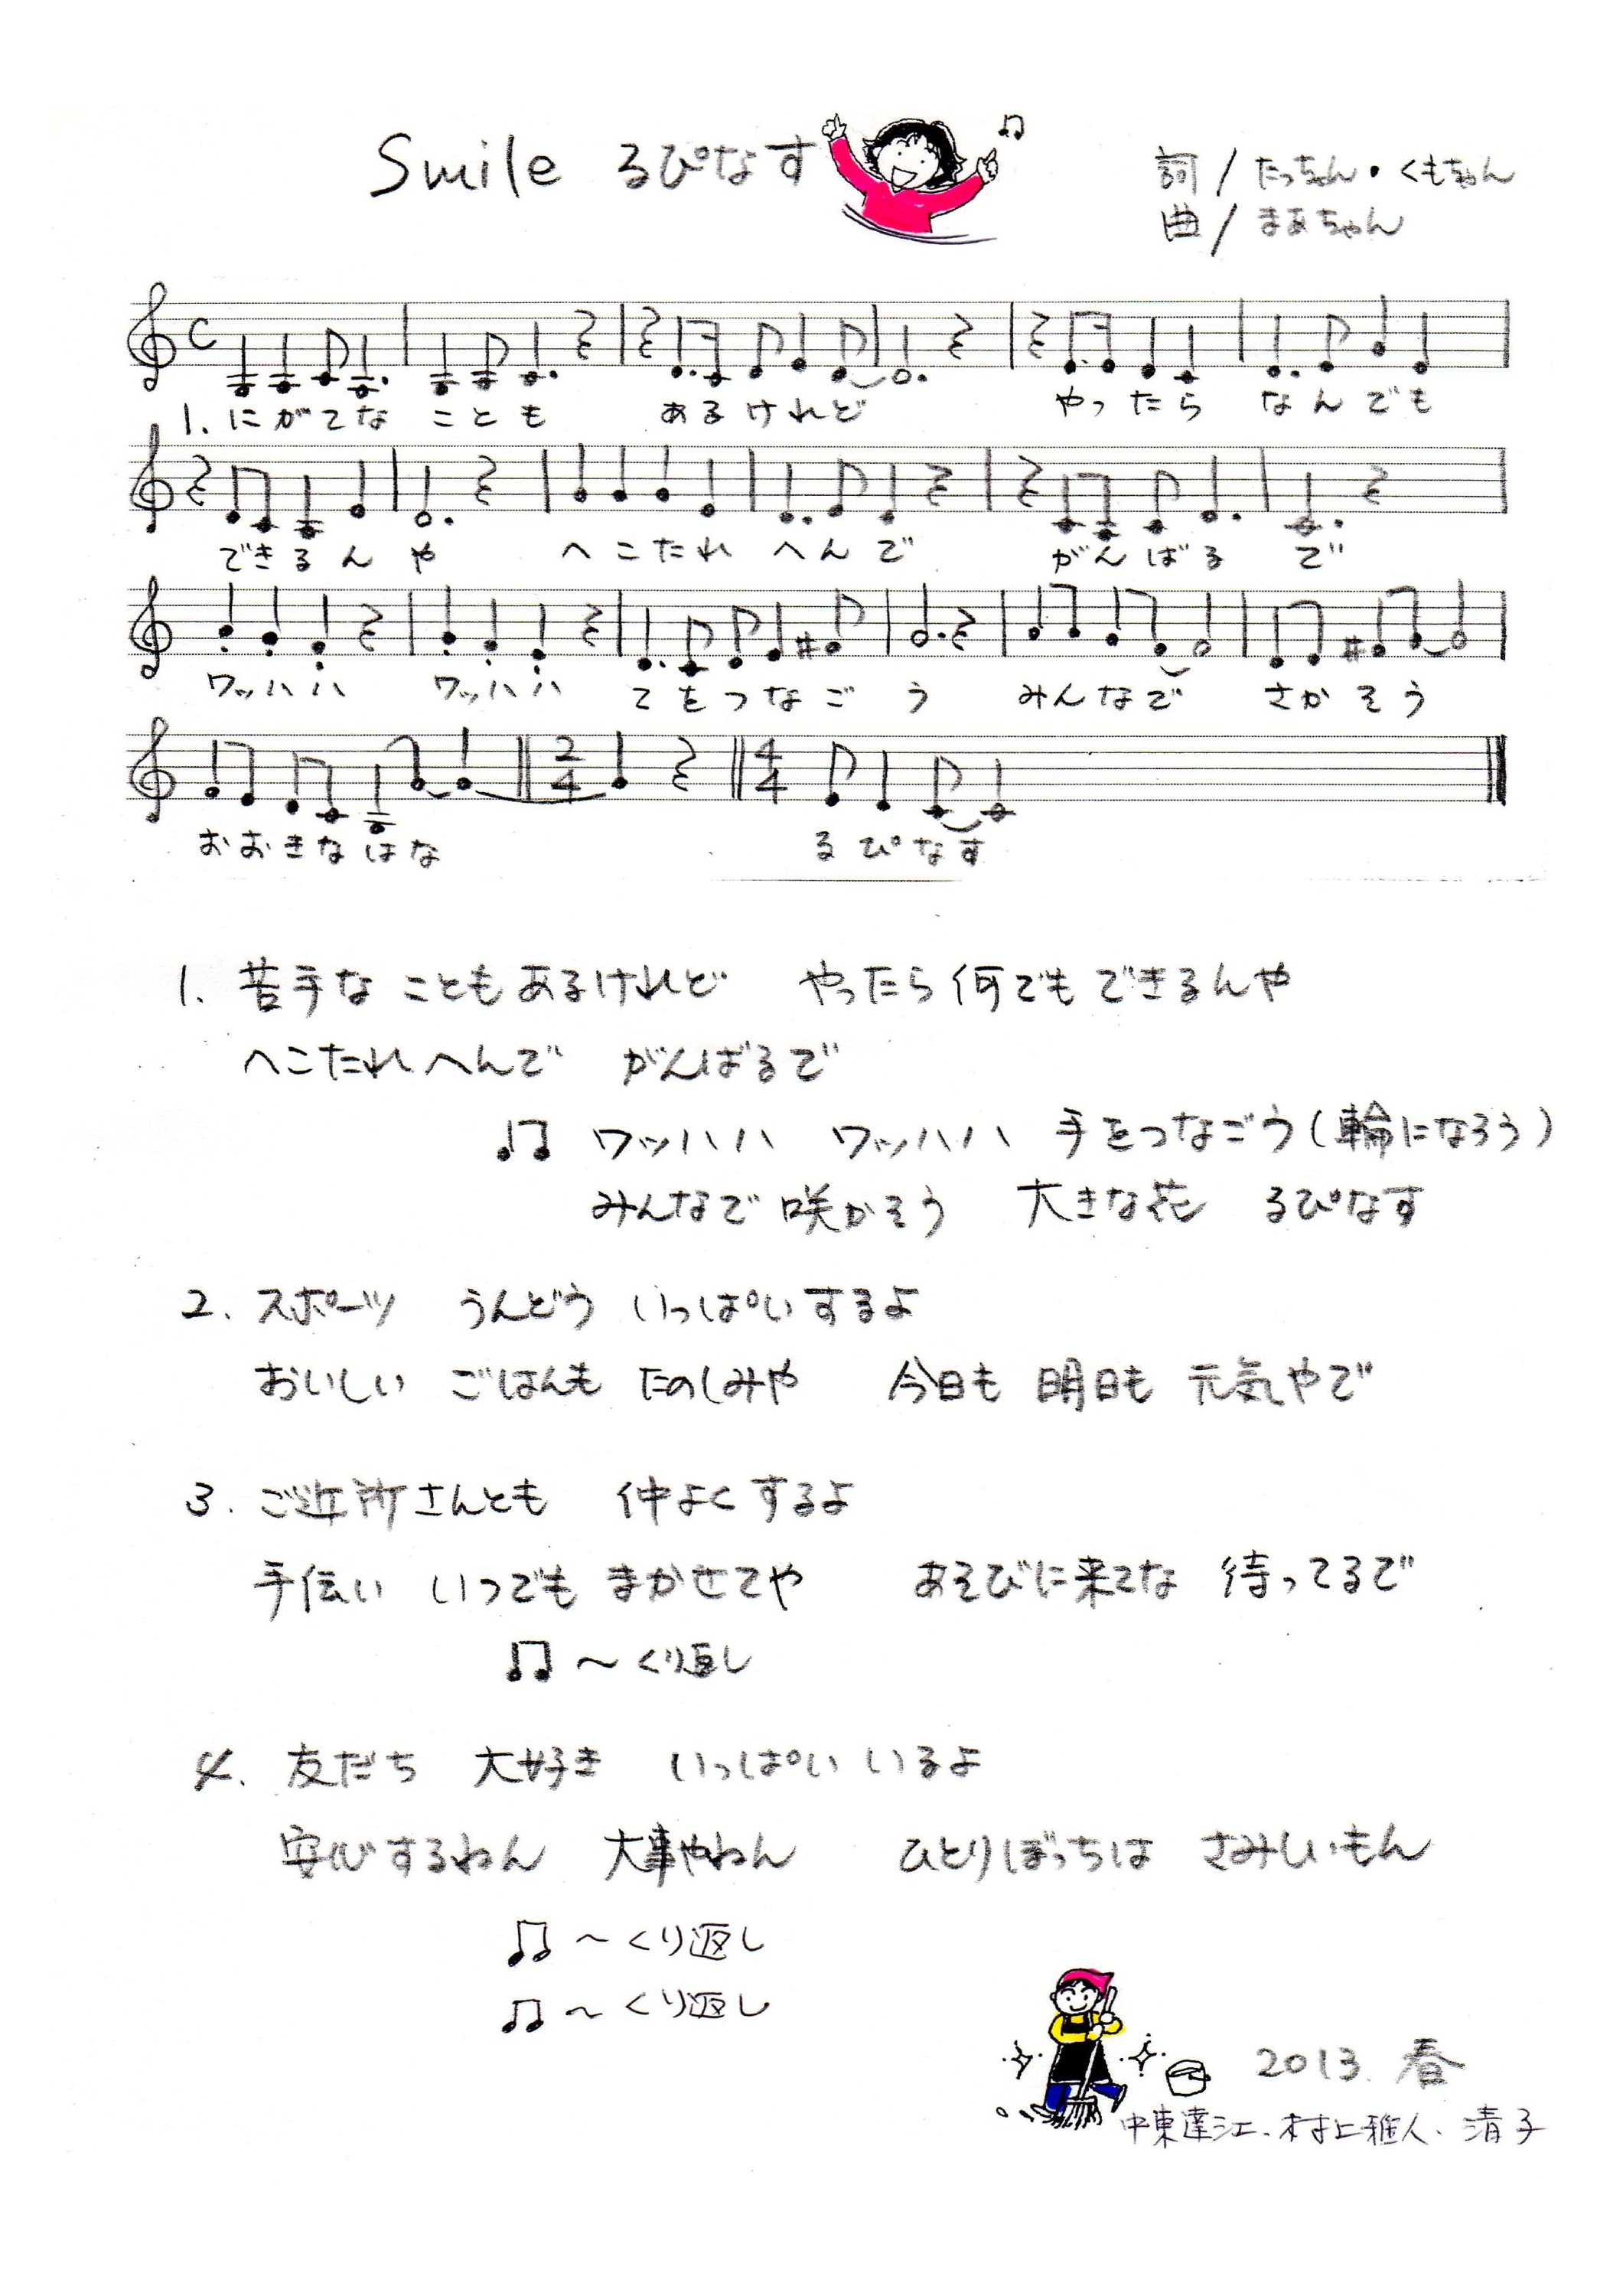 Smile るぴなす
詞/たっちゃん・くもちゃん
曲/まあちゃん
1. にがてな ことも あるけれど やったら なんでも
できるん や へこたれ へんで がんばる で
ワッハハ ワッハハ てをつなごう みんなで さかそう
2/4 4/4
おおきなはな るぴなす
1. 苦手な ことも あるけれど やったら 何でも できるんや
へこたれへんで がんばるで
♫ ワッハハ ワッハハ 手をつなごう(輪になろう)
みんなで 咲かそう 大きな花 るぴなす
2. スポーツ うんどう いっぱいするよ
おいしい ごはんも たのしみや 今日も 明日も 元気やで
3. ご近所さんとも 仲よくするよ
手伝い いつでも まかせてや あそびに来てな 待ってるで
♫ 〜くり返し
4. 友だち 大好き いっぱい いるよ
安心するねん 大事やねん ひとりぼっちは さみしいもん
♫ 〜くり返し
♫ 〜くり返し
2013. 春
中東達江、村上雅人、清子